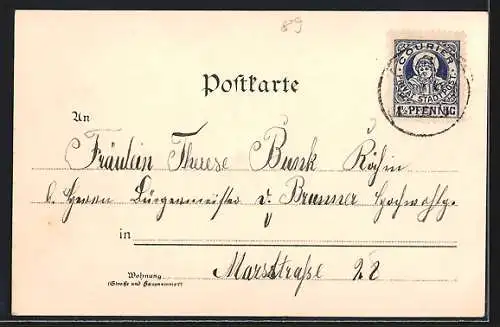 89
COURIER
PRIVAT STADTPOST
1½ PFENNIG
Postkarte
An
Fräulein Therese Bunk Köchin
b. Herrn Bürgermeister v. Brunner Hochwohlg.
in
Marsstraße 22
Wohnung
(Straße und Hausnummer)